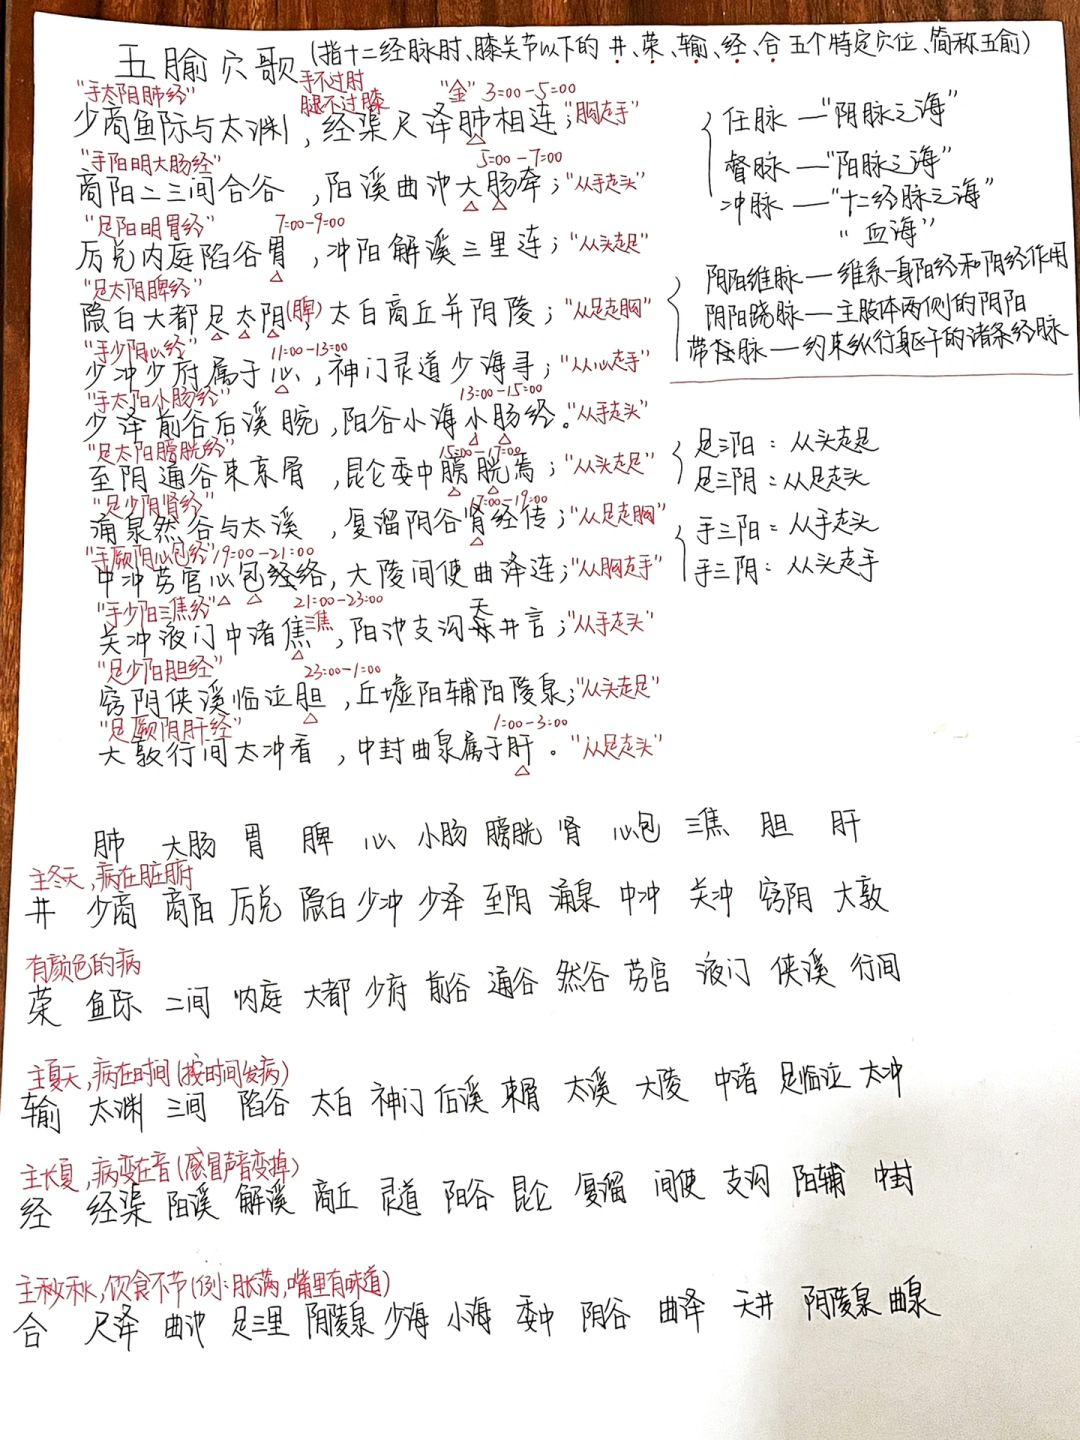 五腧穴歌(指十二经脉肘、膝关节以下的井、荣、输、经、合五个特定穴位、简称五俞)
手不过肘
腿不过膝
"手太阴肺经" "金" 3:00-5:00
少商鱼际与太渊,经渠尺泽肺相连;"胸走手"
"手阳明大肠经" 5:00-7:00
商阳二三间合谷,阳溪曲池大肠牵;"从手走头"
"足阳明胃经" 7:00-9:00
厉兑内庭陷谷胃,冲阳解溪三里连;"从头走足"
"足太阴脾经"
隐白大都足太阴(脾)太白商丘并阴陵;"从足走胸"
"手少阴心经" 11:00-13:00
少冲少府属于心,神门灵道少海寻;"从心走手"
"手太阳小肠经" 13:00-15:00
少泽前谷后溪腕,阳谷小海小肠经。"从手走头"
"足太阳膀胱经" 15:00-17:00
至阴通谷束京骨,昆仑委中膀胱焉;"从头走足"
"足少阴肾经" 17:00-19:00
涌泉然谷与太溪,复溜阴谷肾经传;"从足走胸"
"手厥阴心包经" 19:00-21:00
中冲劳宫心包经络,大陵间使曲泽连;"从胸走手"
"手少阳三焦经" 21:00-23:00
关冲液门中渚焦三焦,阳池支沟天井言;"从手走头"
"足少阳胆经" 23:00-1:00
窍阴侠溪临泣胆,丘墟阳辅阳陵泉;"从头走足"
"足厥阴肝经" 1:00-3:00
大敦行间太冲看,中封曲泉属于肝。"从足走头"
任脉—"阴脉之海"
督脉—"阳脉之海"
冲脉—"十二经脉之海"
"血海"
阴阳维脉—维系一身阳经和阴经作用
阴阳跷脉—主肢体两侧的阴阳
带脉—约束纵行身区干的诸条经脉
足三阳:从头走足
足三阴:从足走头
手三阳:从手走头
手三阴:从头走手
肺 大肠 胃 脾 心 小肠 膀胱 肾 心包 三焦 胆 肝
主冬天,病在脏腑
井 少商 商阳 厉兑 隐白 少冲 少泽 至阴 涌泉 中冲 关冲 窍阴 大敦
有颜色的病
荣 鱼际 二间 内庭 大都 少府 前谷 通谷 然谷 劳宫 液门 侠溪 行间
主夏天,病在时间(按时间发病)
输 太渊 三间 陷谷 太白 神门 后溪 束骨 太溪 大陵 中渚 足临泣 太冲
主长夏,病变在音(感冒声音变掉)
经 经渠 阳溪 解溪 商丘 灵道 阳谷 昆仑 复溜 间使 支沟 阳辅 中封
主秋,饮食不节(例:胀满,嘴里有味道)
合 尺泽 曲池 足三里 阴陵泉 少海 小海 委中 阴谷 曲泽 天井 阳陵泉 曲泉